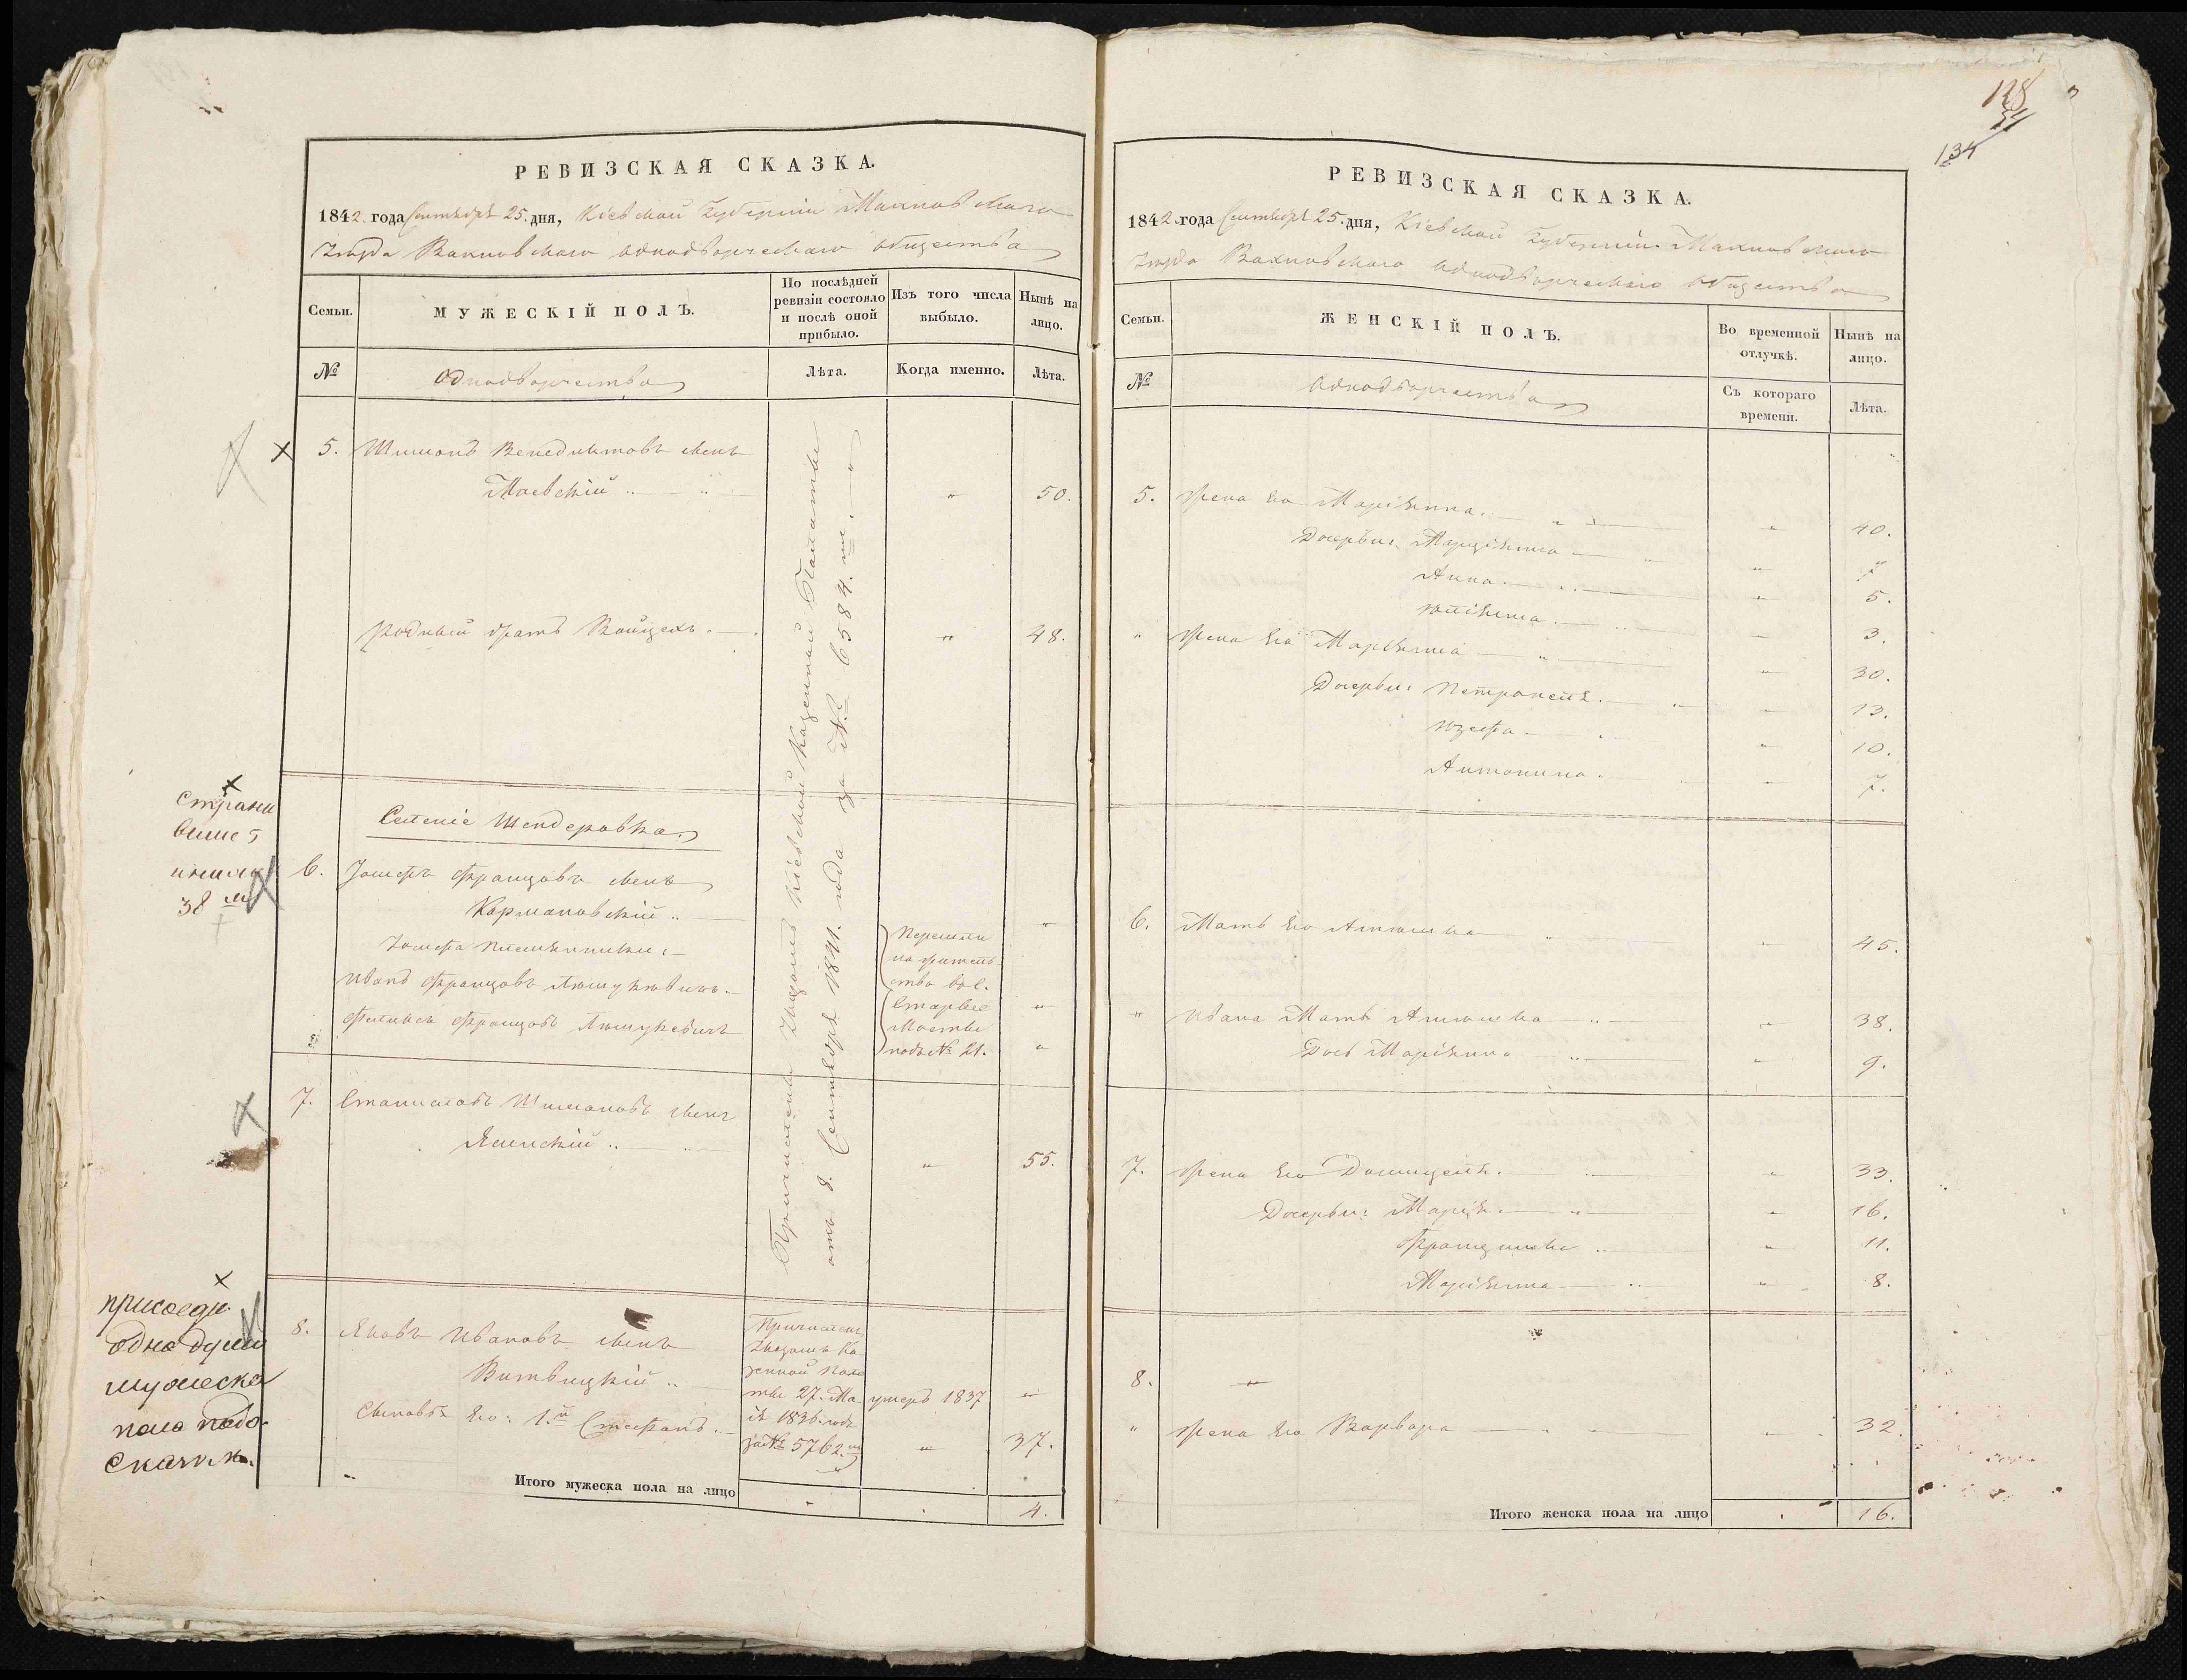 РЕВИЗСКАЯ СКАЗКА.
1842 года Сентября 25. дня, Кіевской Губерніи Махновскаго
Уезда Вахновскаго Однодворческаго общества
Семьи.
МУЖЕСКІЙ ПОЛЪ.
По послѣдней
ревизіи состояло
и послѣ оной
прибыло.
Изъ того числа
выбыло.
Нынѣ на
лицо.
№
Однодворчества
Лѣта.
Когда именно.
Лѣта.
Причислены Указомъ Кіевской Казенной Палаты
отъ 8. Сентября 1841. года за № 6584. мъ.
5. Шимонъ Венедиктовъ сынъ
Маевскій 50.
Родный братъ Войцехъ. 48.
Страни
више 5
38
Селеніе Шендеровка
6. Іосифъ Францовъ сынъ
Кармановскій
Іосифа Племянники:
Иванъ Францовъ
Феликсъ Францовъ
Перешли
на житель
ство въ с.
Старые
Мосты
подъ № 21.
7. Станиславъ Шимоновъ сынъ
Ясинскій 55.
присоеди
одна душа
мужеска
пола
8. Яковъ Ивановъ сынъ
Витвицкій
Причислен
Указомъ Ка-
зенной Пала
ты 27. Ма
ія 1836. года
за № 5762.
умеръ 1837
Сыновья Его: 1.й Стефанъ 37.
Итого мужеска пола на лицо 4.
128
134
РЕВИЗСКАЯ СКАЗКА.
1842 года Сентября 25. дня, Кіевской Губерніи Махновскаго
Уезда Вахновскаго Однодворческаго общества
Семьи.
ЖЕНСКІЙ ПОЛЪ.
Во временной
отлучкѣ.
Нынѣ на
лицо.
№
Однодворчества
Съ котораго
времени.
Лѣта.
5. Жена Его Маріянна. 40.
Дочери: Марціянна 7
Анна 5.
Юліянна 3.
Жена Его Маріянна 30.
Дочери: Петронеля. 13.
Юзефа 10.
Антонина. 7.
6. Мать Его 45.
Ивана Мать 38.
Дочь Маріянна 9.
7. Жена Его Домицеля. 33.
Дочери: Марія 16.
Францишка 11.
Маріянна 8.
8.
Жена Его Варвара 32.
Итого женска пола на лицо 16.